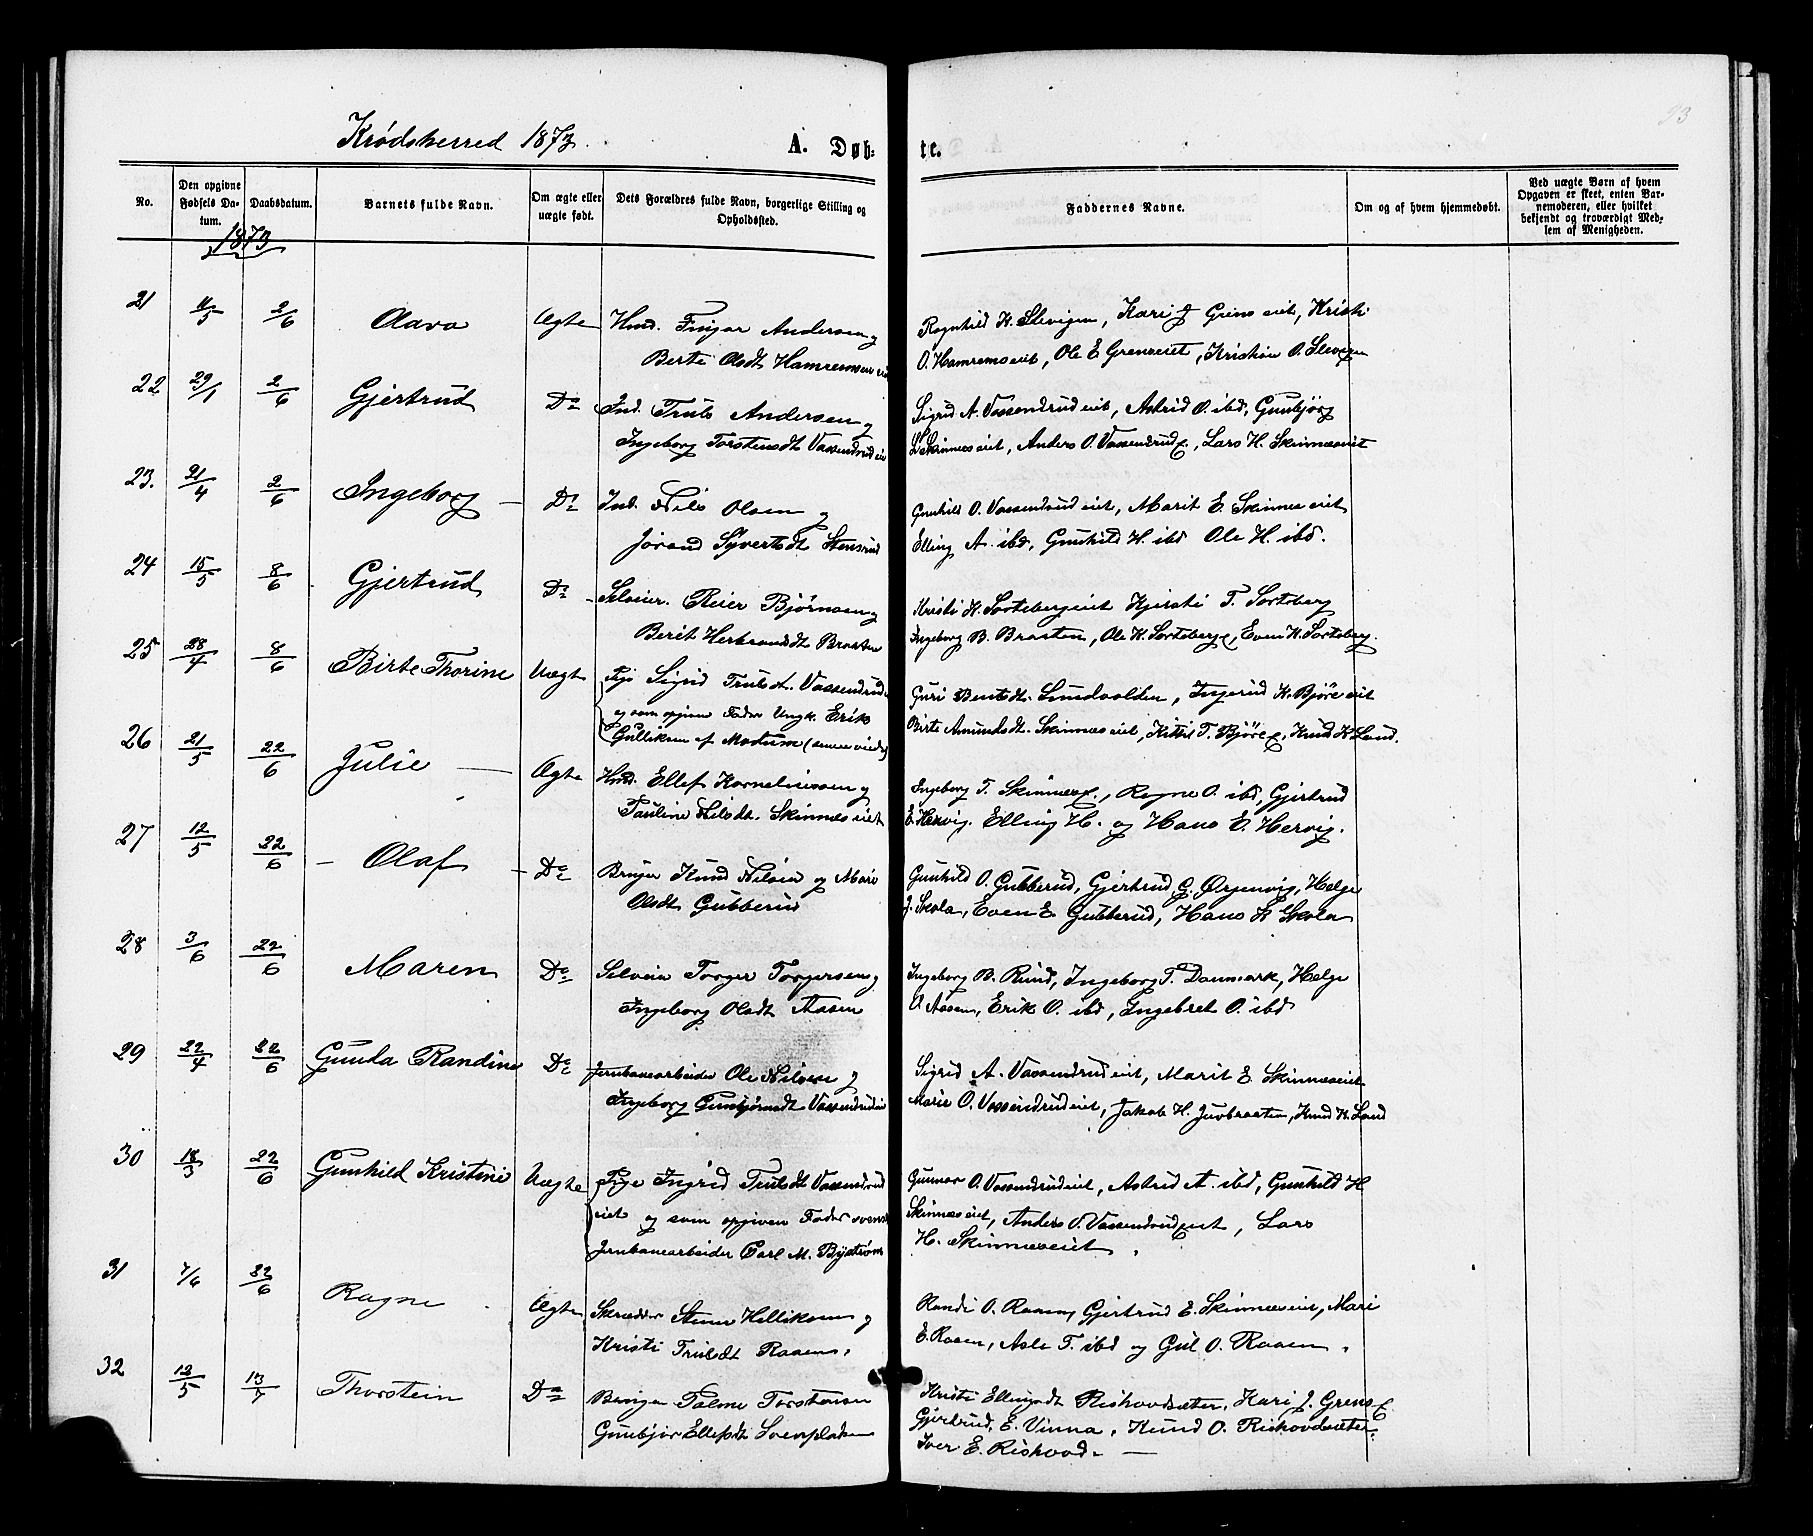 23
Krødsherred 1873.
A. Døb-
te.
No.
Den opgivne Fødsels Datum.
Daabsdatum.
Barnets fulde Navn.
Om ægte eller uægte født.
Dets Forældres fulde Navn, borgerlige Stilling og Opholdssted.
Faddernes Navne.
Om og af hvem hjemmedøbt.
Ved uægte Børn af hvem Opgaven er skeet, enten Barnemoderen, eller hvilket bekjendt og troværdigt Medlem af Menigheden.
1873
21 11/5 2/6 Ægte Hmd. Andersen og
Berte Olsdt
O. Hamremseiet, Ole E
22 29/1 2/6 Gjertrud Do Ind. Truls Andersen og
Ingeborg Torstensdt Vassendrudeie
Sigrid A. Vassendrudeiet, Astrid O. ibd, Gunbjørg
Skinneseiet, Anders O. Vassendrud, Lars H. Skinneseiet
23. 21/4 2/6 Ingeborg - Do Ind. Nils Olsen og
Jørand Syvertsdt Stensrud
Gunhild O. Vassendrudeiet, Marit E. Skinneseiet
Elling A. ibd, Gunhild H. ibd Ole H. ibd.
24 15/5 8/6 Gjertrud Do Selveier. Reier Bjørnsen og
Berit Herbrandsdt Braaten
Kristi H. Sortebergeiet Kjersti T. Sorteberg
Ingeborg B. Braaten, Ole K. Sorteberg, Even K. Sorteberg.
25 28/4 8/6 Birte Thorine Uægte Pige Sigrid Trulsdt. Vassendrud
og som opgiven Fader Ungk. Erik
Gulliksen af Modum
Guri Bentsdt. Sundvolden, Ingerid K. Bjøreeiet
Birte Amundsdt. Skinneseiet, Kittil T. Bjøre, Knud K. Lund.
26 21/5 22/6 Julie - Ægte Hmd. Ellef Korneliussen og
Pauline Nilsdt. Skinneseiet
Ingeborg T. Skinnes, Ragne O. ibd, Gjertrud
E. Hervig. Elling H. og Hans E. Hervig.
27 12/5 22/6 - Olaf - Do Bruger Knud Nilsen og Mari
Olsdt Gubberud
Gunhild O. Gubberud, Gjertrud G. Ørgenvig, Helge
J. Skola, Even E Gubberud, Hans K Skola
28 3/6 22/6 Maren Do Selveier Torger Torgersen og
Ingeborg Olsdt Aasen
Ingeborg B. Rund, Ingeborg T. Danmark, Helge
O Aasen, Erik O. ibd, Ingebret O. ibd
29 22/4 22/6 Gunda Randine Do Jernbanearbeider Ole Nilsen og
Ingeborg Gunbjørnsdt Vassendrudeie
Sigrid A. Vassendrudeiet, Marit E. Skinneseiet
Marie O. Vassendrudeiet, Jakob H. Juvbraaten, Knud K. Lund
30 18/3 22/6 Gunhild Kristine Uægte Pige Ingrid Trulsdt Vassendrud
eiet og som opgiven Fader svensk
Jernbanearbeider Carl M. Byström
Gunnar O. Vassendrudeiet, Astrid A. ibd, Gunhild H
Skinneseiet, Anders O. Vassendrudeiet, Lars
H. Skinneseiet.
31 7/6 22/6 Ragne Ægte Skrædder Steinar Helliksen og
Kristi Trulsdt Raaen.
Randi O. Raaen, Gjertrud E. Skinneseiet, Mari
E. Raaen, Asle T. ibd og Gul O. Raaen.
32 12/5 13/7 Thorstein Do Palme Torstensen
Gunbjør Ellefsdt
Kristi Ellingsdt Riskovdsæter, Kari J. Grens
Gjertrud. E. Vinna, Knud O. Riskovdsæter
Iver E. Riskovd. -